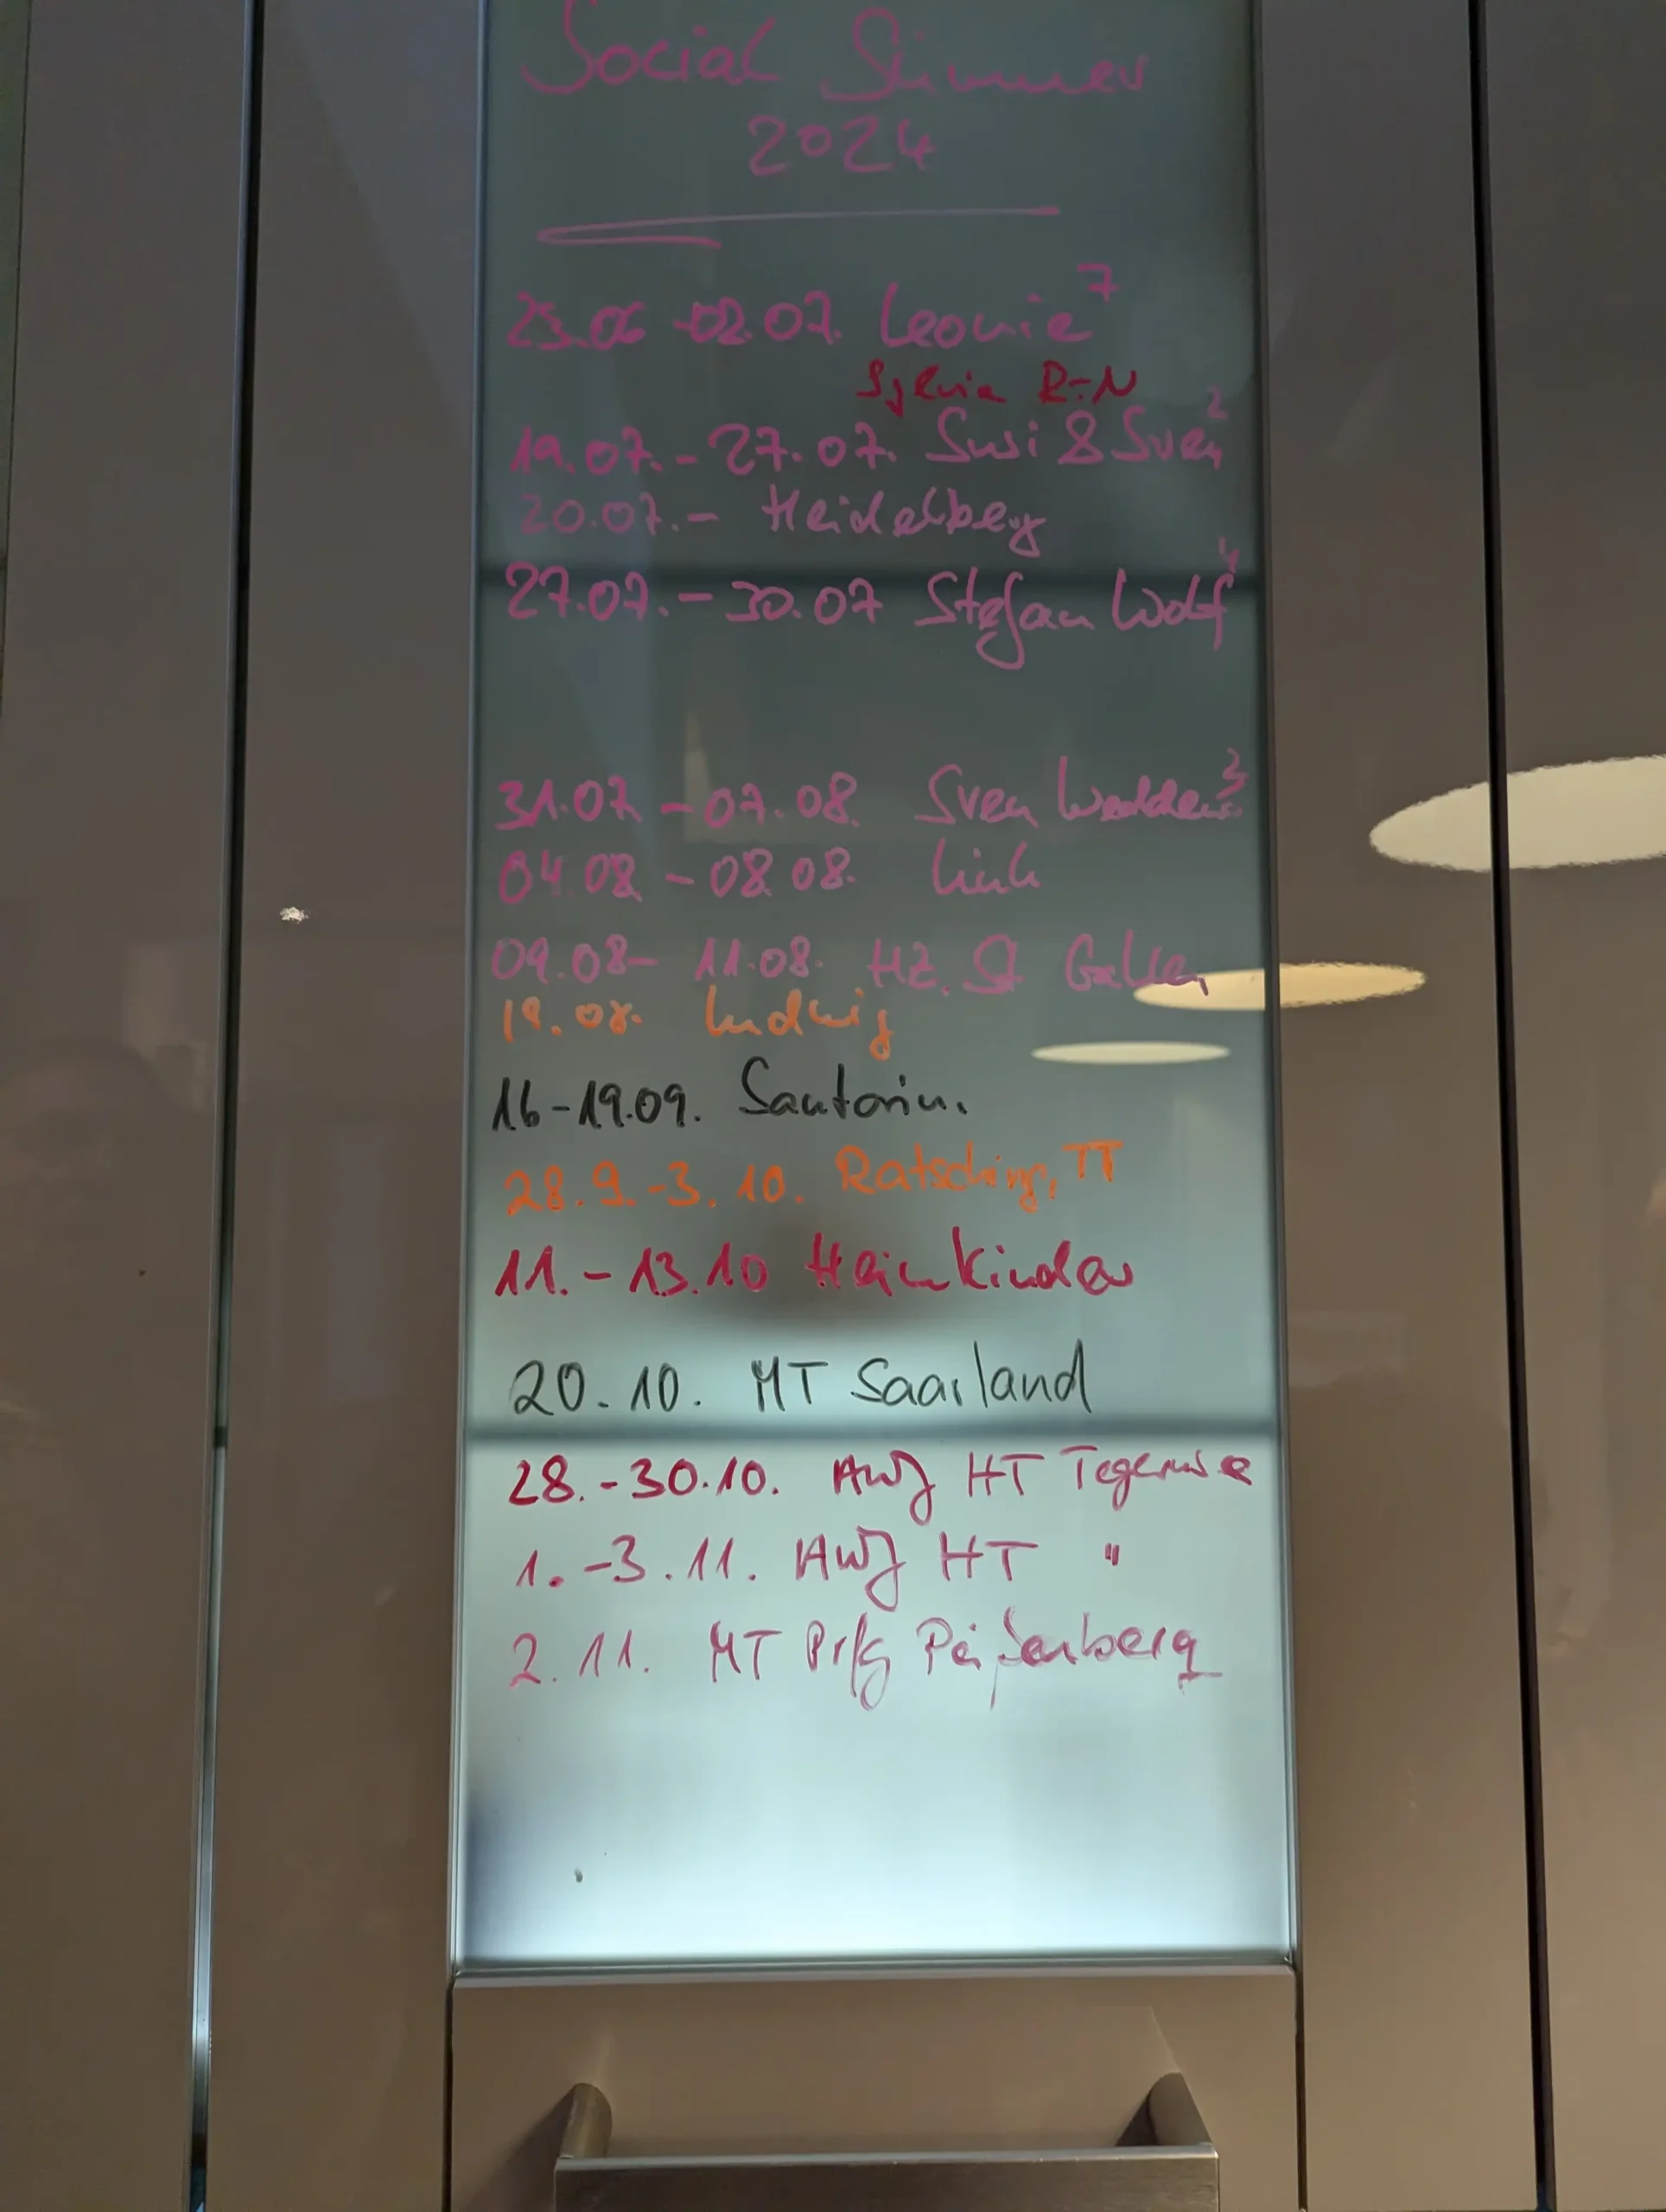 Social Summer
2024
25.06 - 02.07. Leonie 7
Sylvia R-N
19.07. - 27.07. Susi & Sven 2
20.07. - Heidelberg
27.07. - 30.07 Stefan Wolf 4
31.07. - 07.08. Sven 3
04 08. - 08 08.
09.08 - 11.08. HZ. St Gallen
19.08. Ludwig
16-19.09. Santorin.
28.9.-3.10. Ratschings, TT
11. - 13.10 Heimkinder
20.10. MT Saarland
28.-30.10. AWJ HT Tegernsee
1.-3.11. AWJ HT "
2.11. MT Prfg Peißenberg